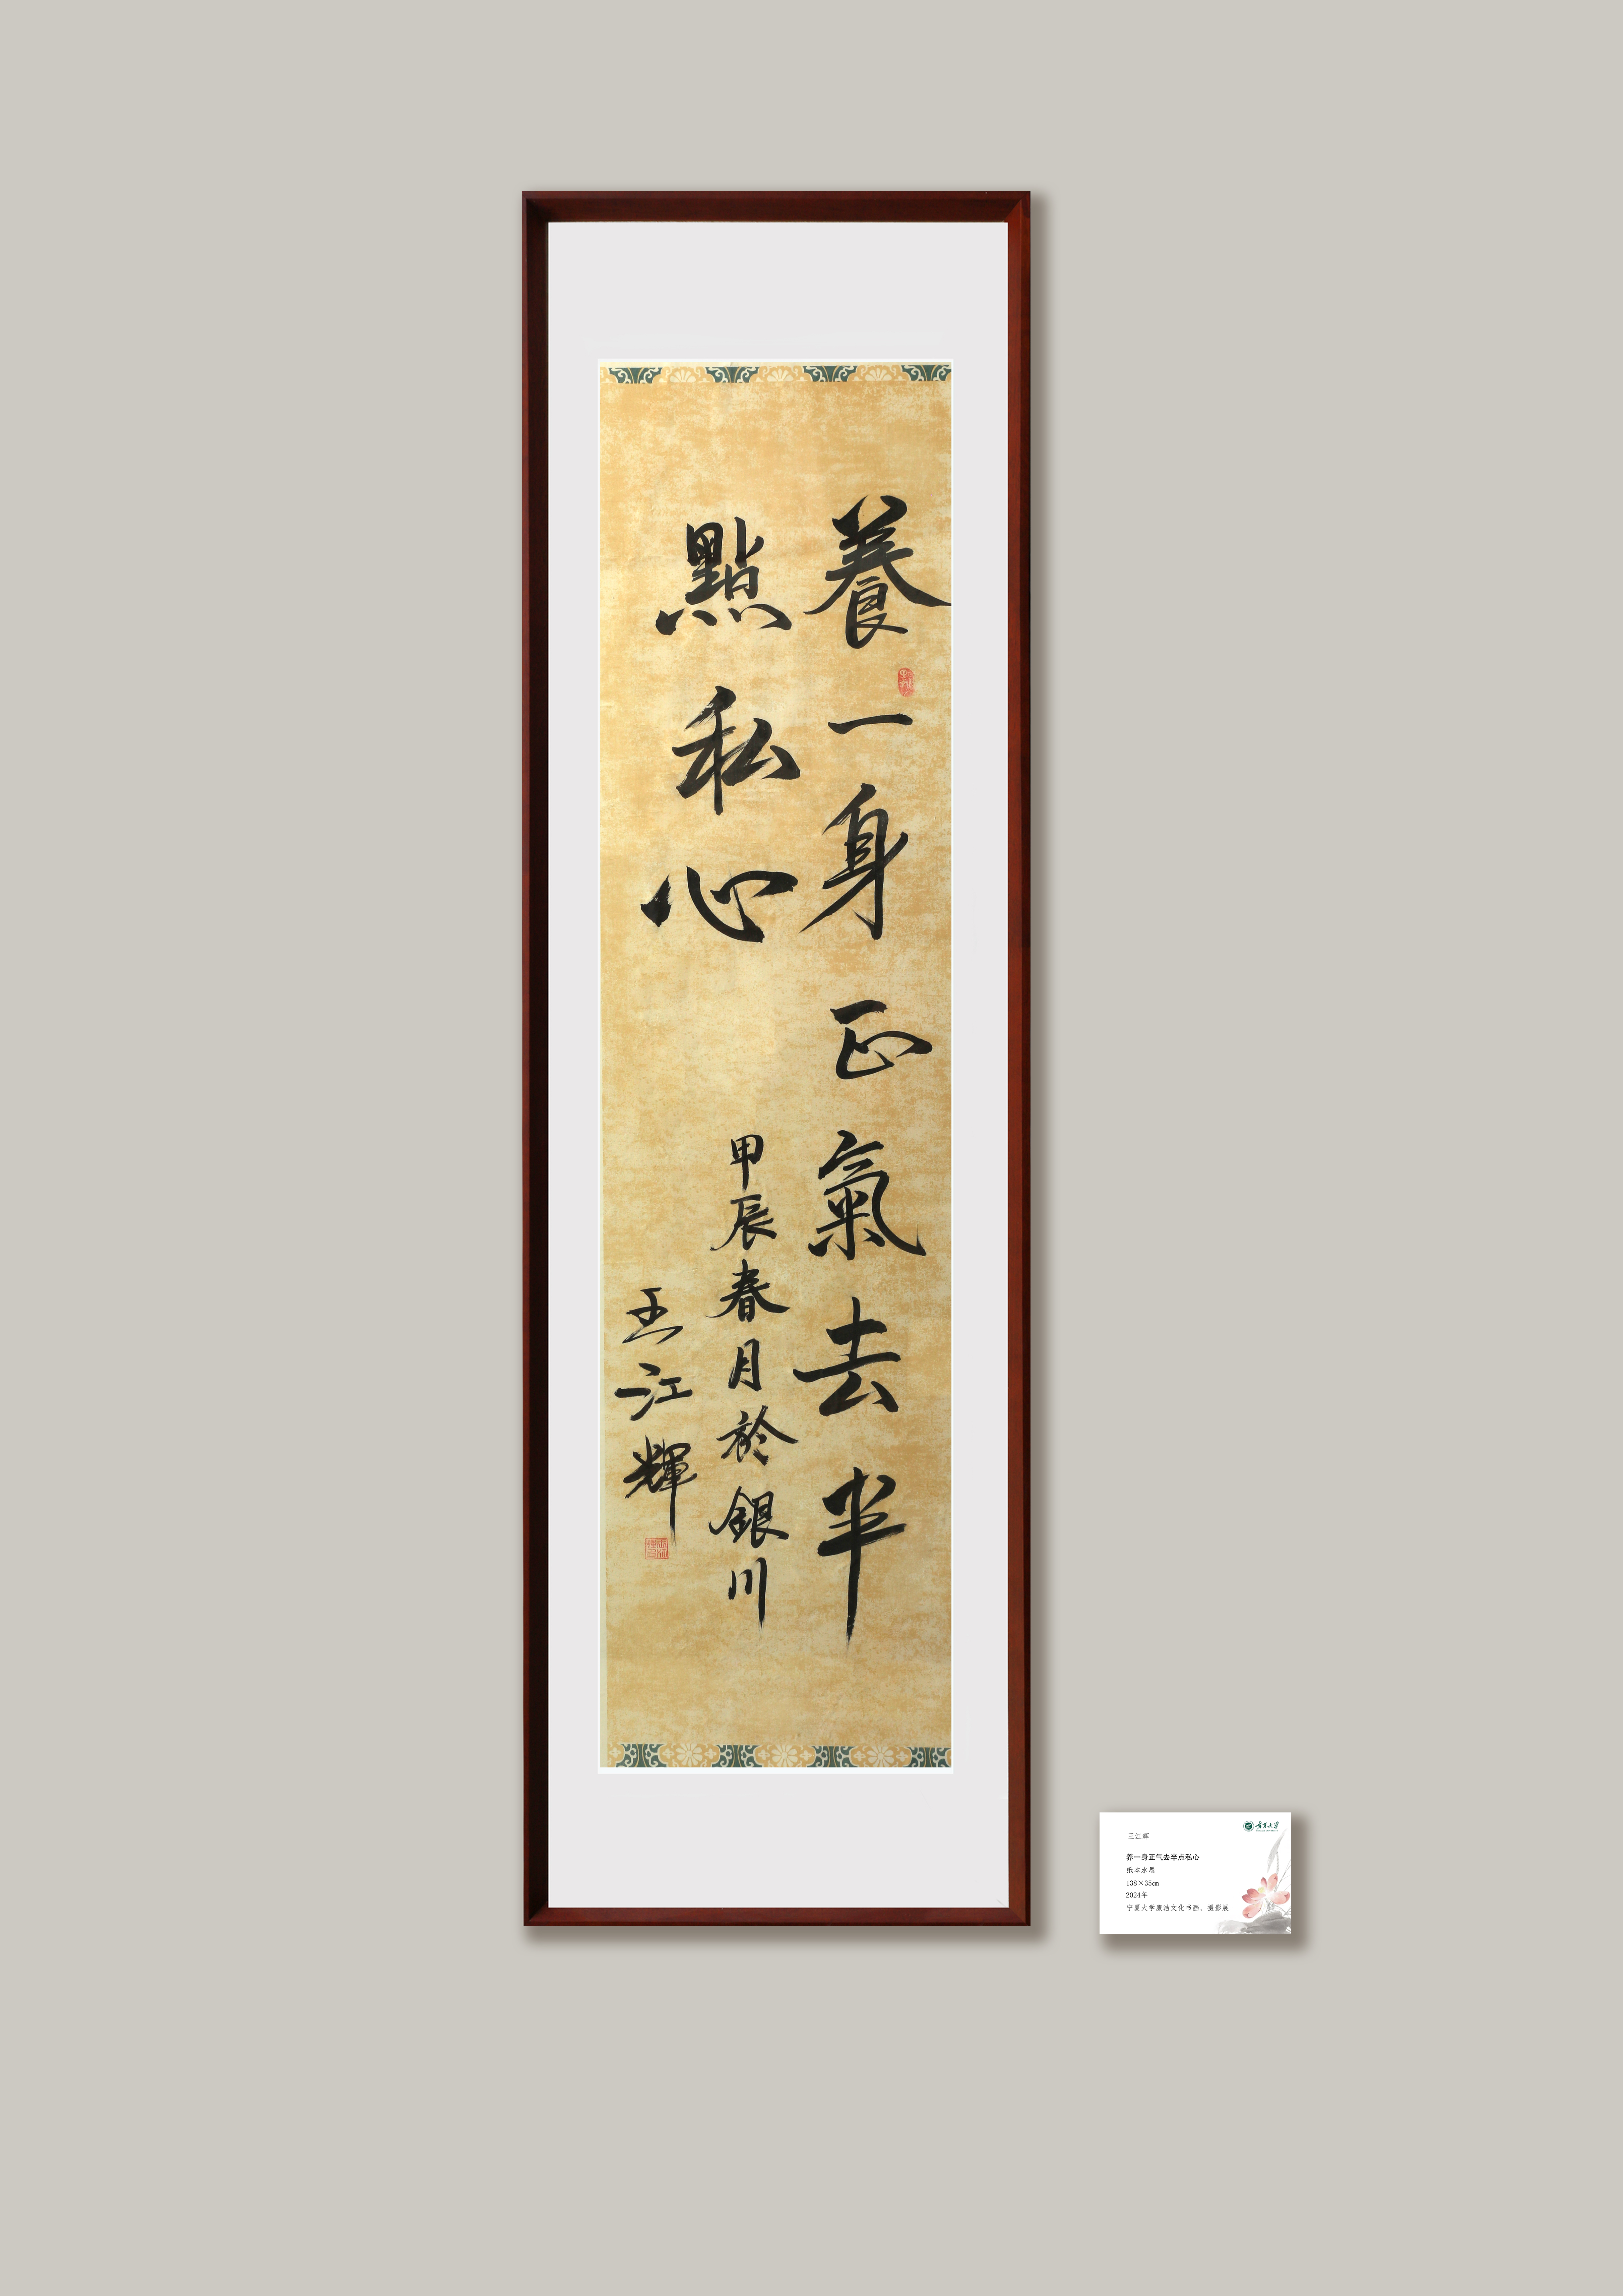 養一身正氣去半
點私心
甲辰春月於銀川
王江輝
宁夏大学
王江辉
养一身正气去半点私心
纸本水墨
138×35cm
2024年
宁夏大学廉洁文化书画、摄影展